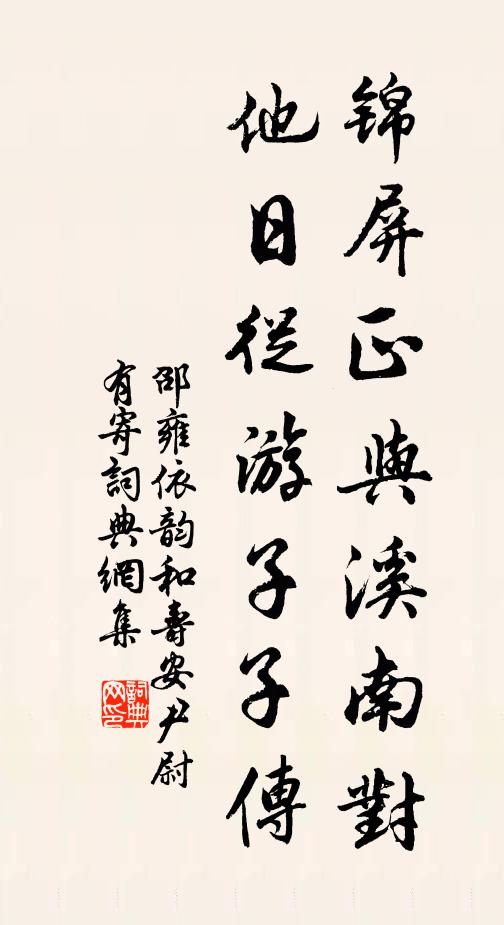 锦屏正與溪南對
他日從游子子傳
邵雍依韵和壽安尹尉
有寄詞典網集
詞典网印